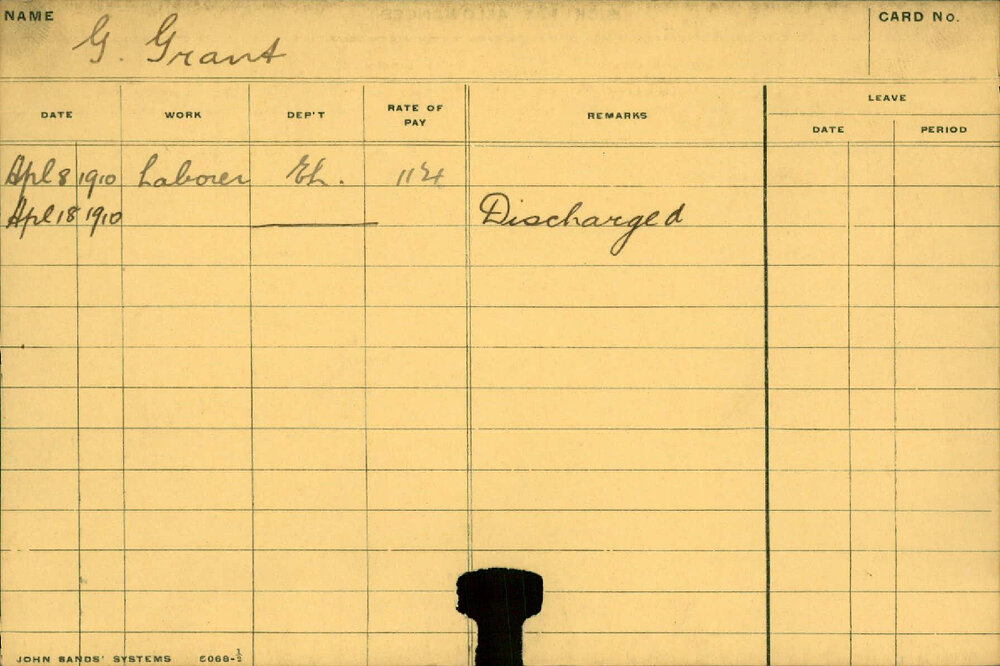 NAME G. Grant CARD No.
LEAVE
DATE WORK DEP'T RATE OF PAY REMARKS DATE PERIOD
Apl 8 1910 Laborer
Apl 18 1910 Discharged
JOHN SANDS' SYSTEMS 6068-½